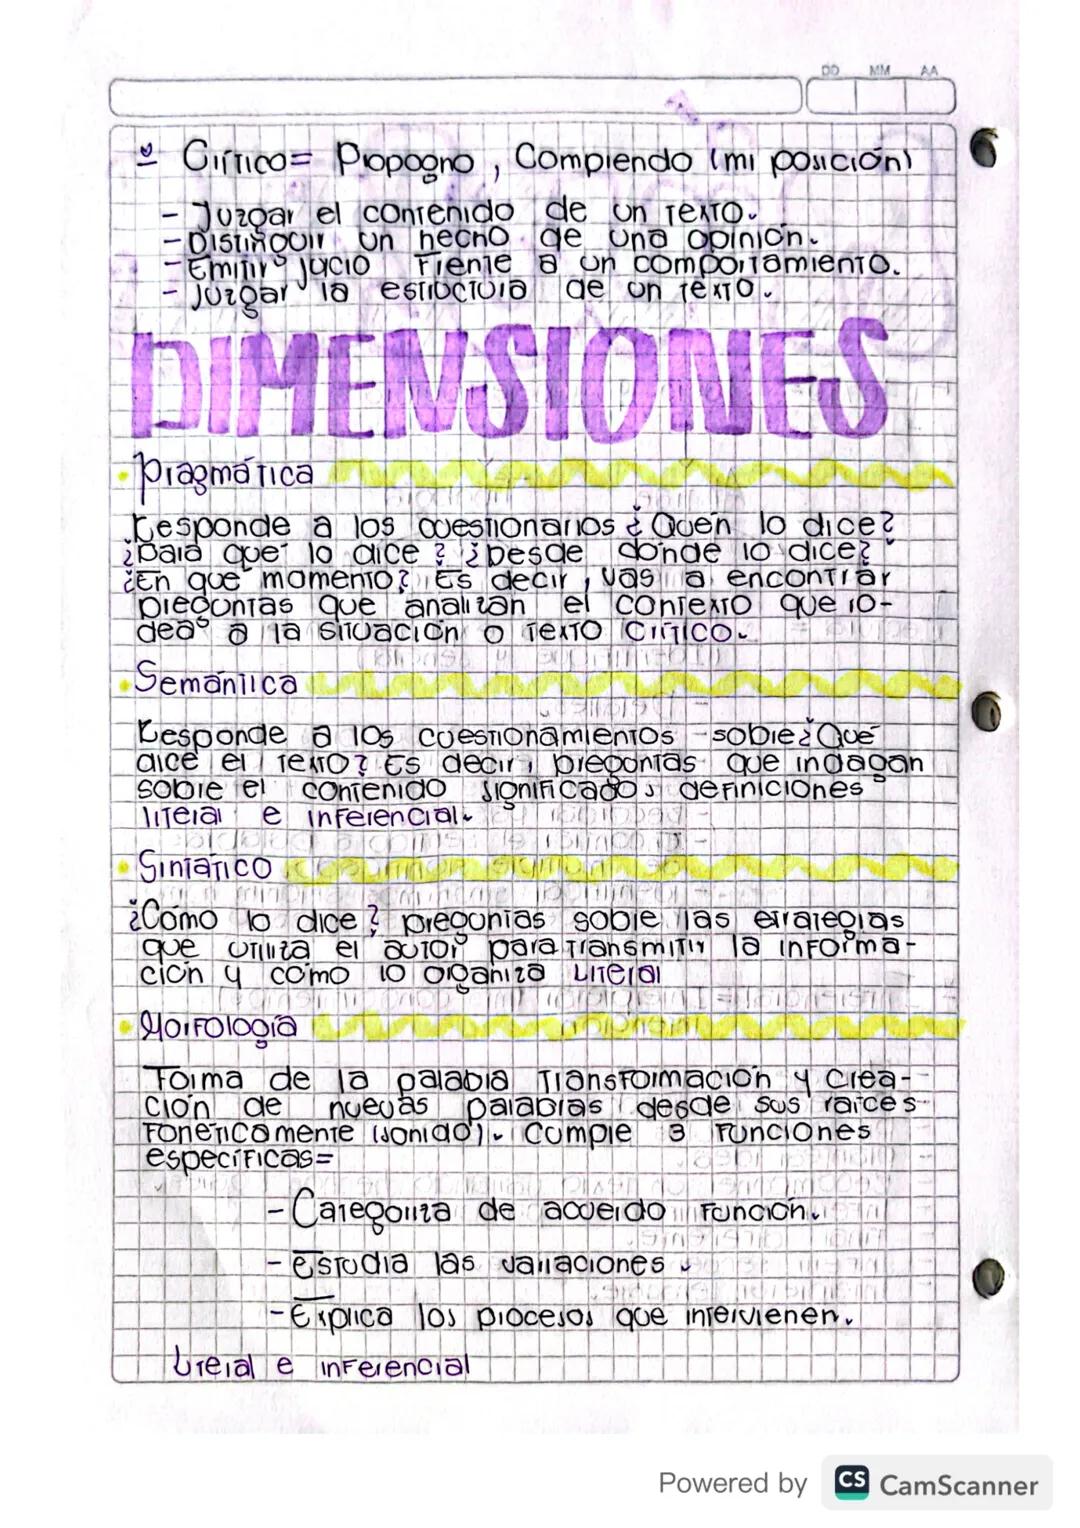 DD MM AA
Crítico= Propogno, Comprendo (mi posición)
- Juzgar el contenido de un texto.
- Distinguir un hecho de una opinión.
- Emitir jucio frente a un comportamiento.
- Juzgar la estructura de un texto.
DIMENSIONES
• Pragmática
Responde a los cuestionarios ¿Quén lo dice?
¿Para qué lo dice? ¿Desde dónde lo dice?
¿En que momento? Es decir, vas a encontrar
preguntas que analizan el contexto que ro-
dea a la situación o texto crítico.
• Semántica
Responde a los cuestionamientos sobre ¿Qué
dice el texto? Es decir, preguntas que indagan
sobre el contenido significados definiciones
literal e inferencial.
• Sintático
¿Cómo lo dice? preguntas sobre las etrategias
que utiliza el autor para transmitir la informa-
ción y cómo lo organiza Literal
• Morfología
Forma de la palabra Transformación y crea-
ción de nuevas palabras desde sus raices
foneticamente (sonido). Cumple 3 funciones
específicas=
- Categoriza de acuerdo función.
- Estudia las variaciones.
- Explica los procesos que intervienen.
Literal e inferencial
Powered by CS CamScanner